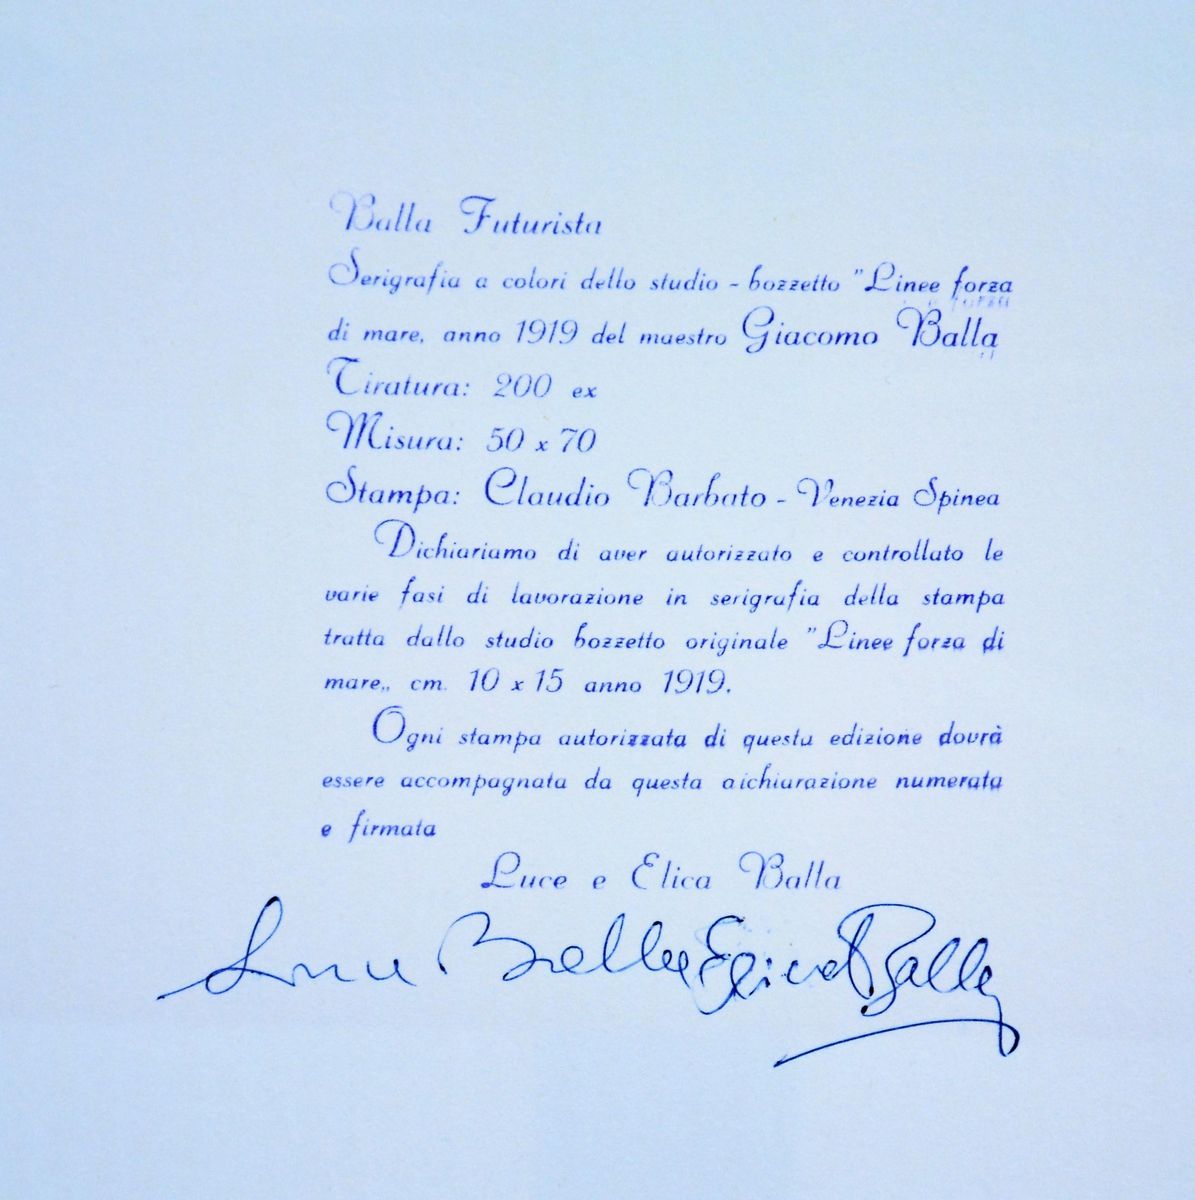 Balla Futurista
Serigrafia a colori dello studio - bozzetto "Linee forza
di mare, anno 1919 del maestro Giacomo Balla
Tiratura: 200 ex
Misura: 50 x 70
Stampa: Claudio Barbato - Venezia Spinea
Dichiariamo di aver autorizzato e controllato le
varie fasi di lavorazione in serigrafia della stampa
tratta dallo studio bozzetto originale "Linee forza di
mare,, cm. 10 x 15 anno 1919.
Ogni stampa autorizzata di questa edizione dovrà
essere accompagnata da questa dichiarazione numerata
e firmata
Luce e Elica Balla
Luce Balla Elica Balla